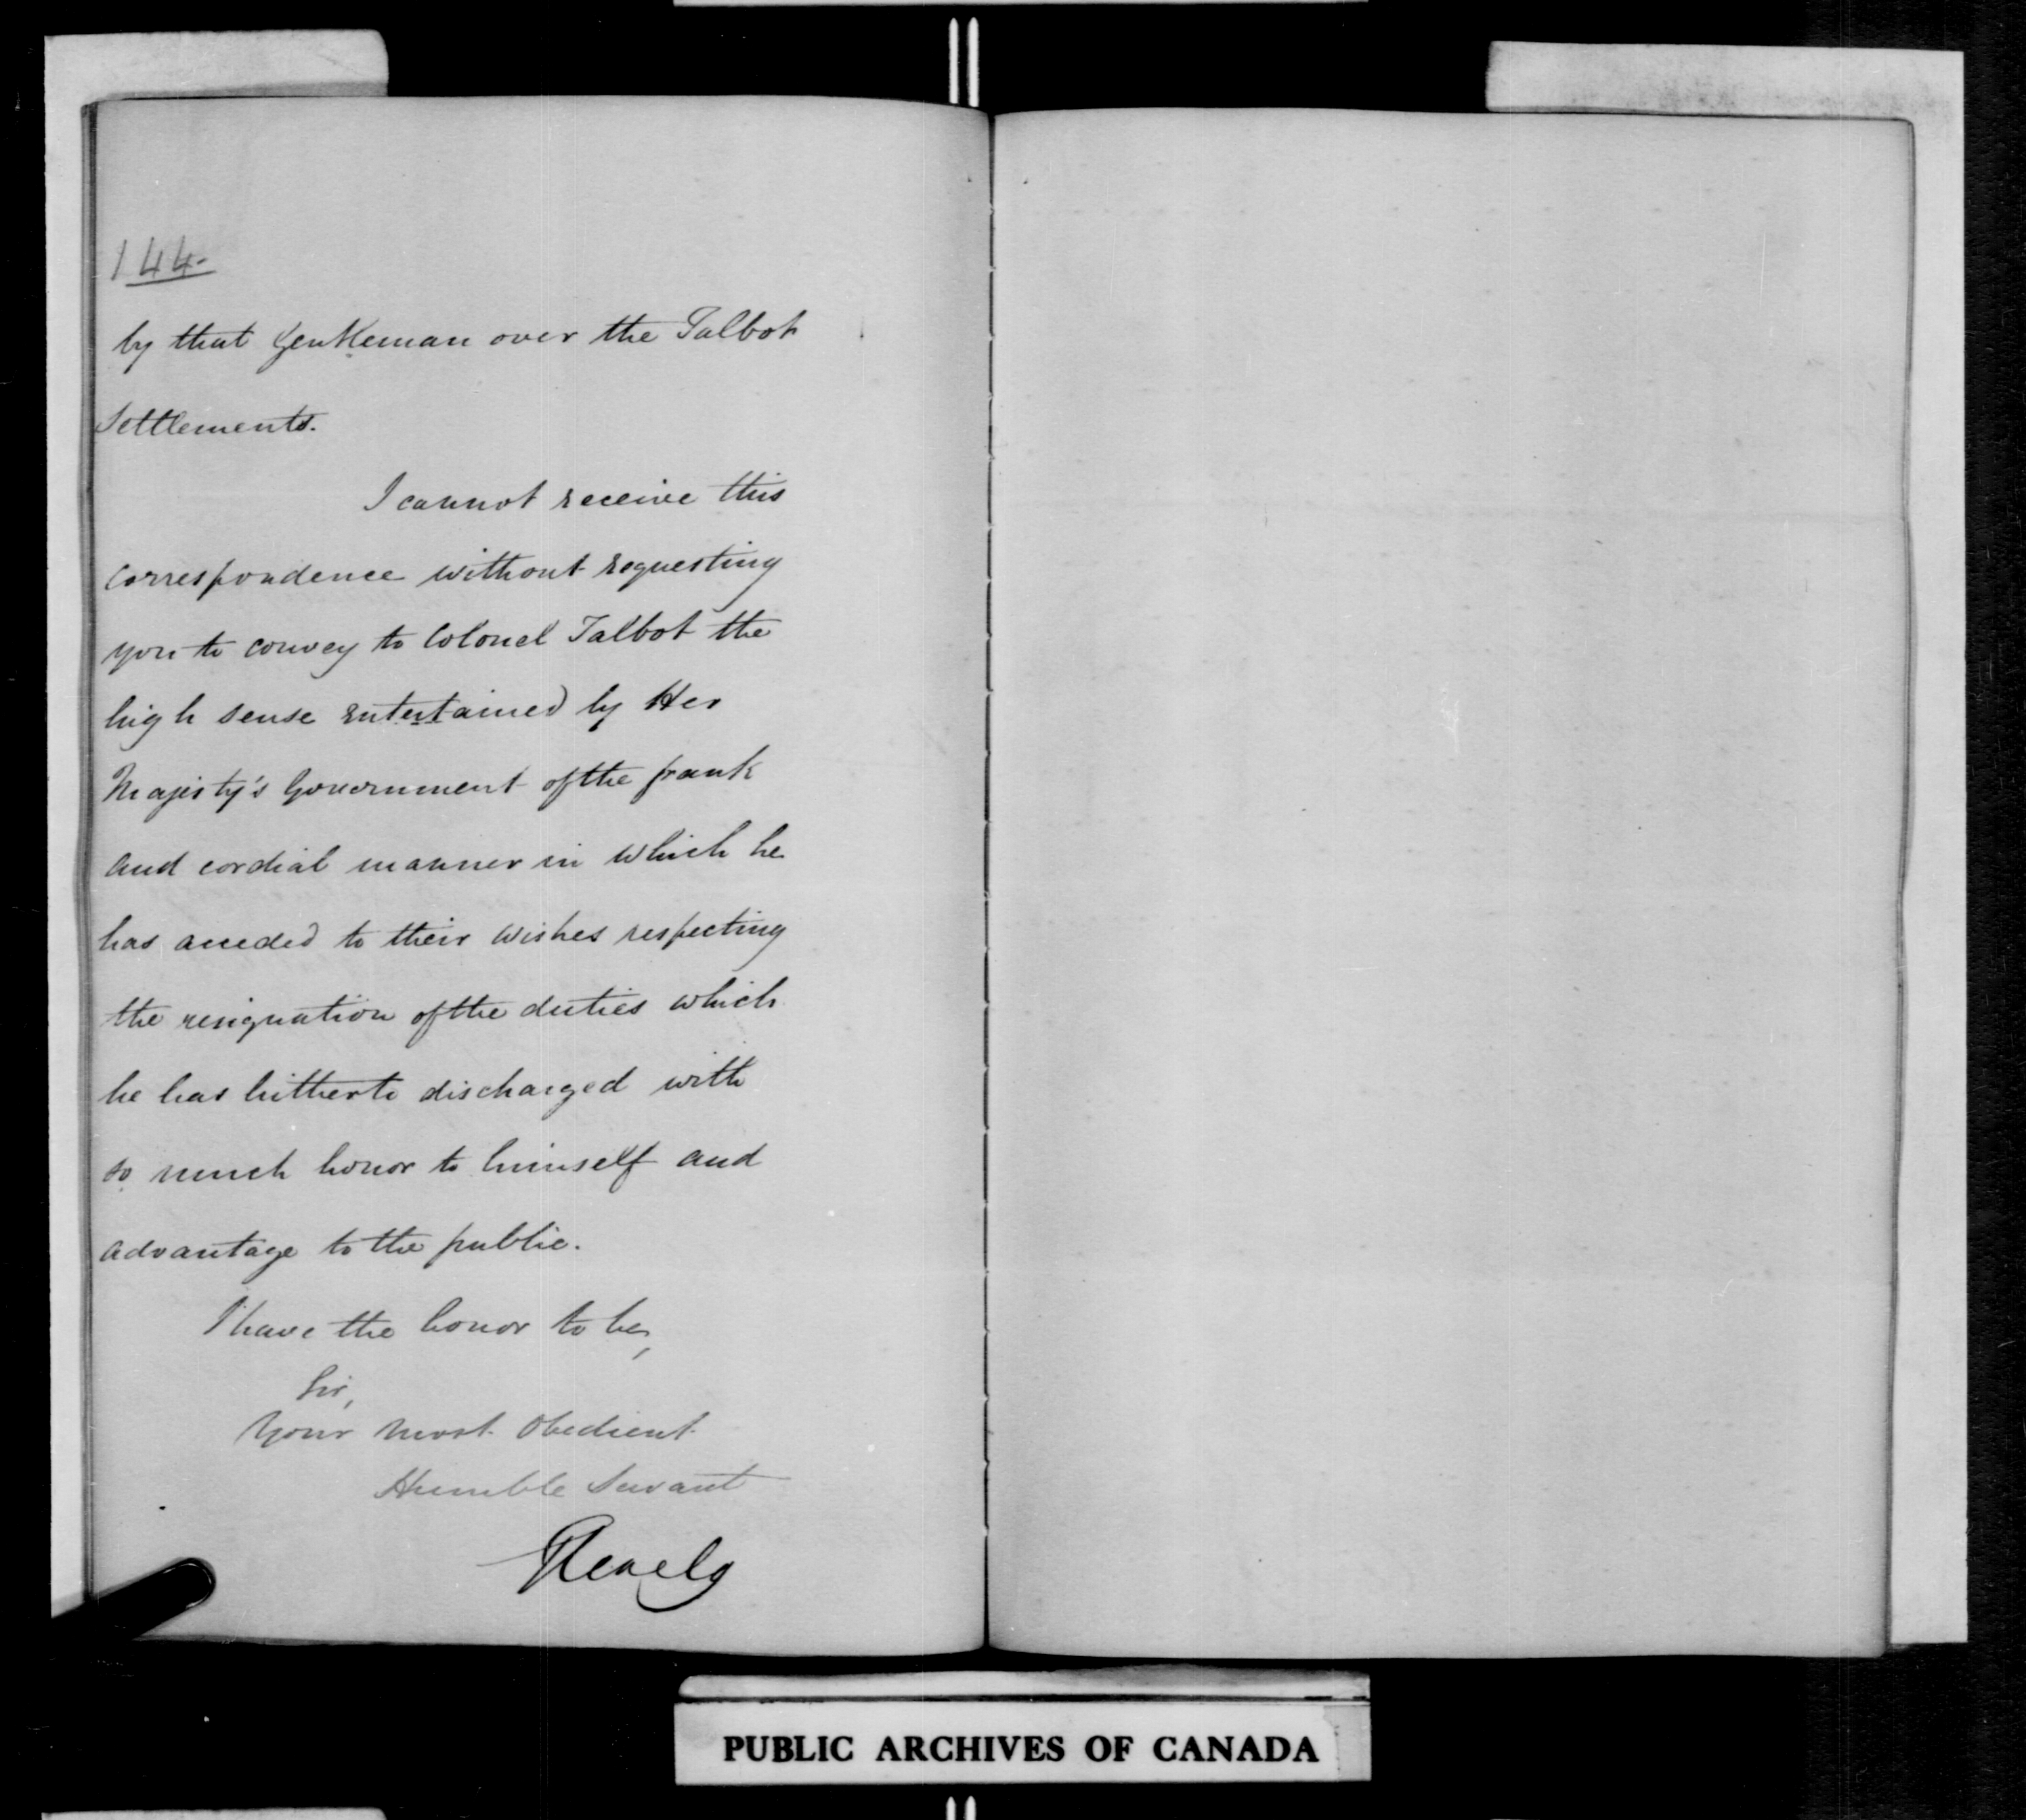 144-
by that Gentleman over the Talbot
Settlements.
I cannot receive this
Correspondence without requesting
you to convey to Colonel Talbot the
high sense entertained by Her
Majesty's Government of the frank
and cordial manner in which he
has acceded to their wishes respecting
the resignation of the duties which
he has hitherto discharged with
so much honor to himself and
advantage to the public.
I have the honor to be,
Sir,
Your Most Obedient
Humble Servant
Glenelg
PUBLIC ARCHIVES OF CANADA